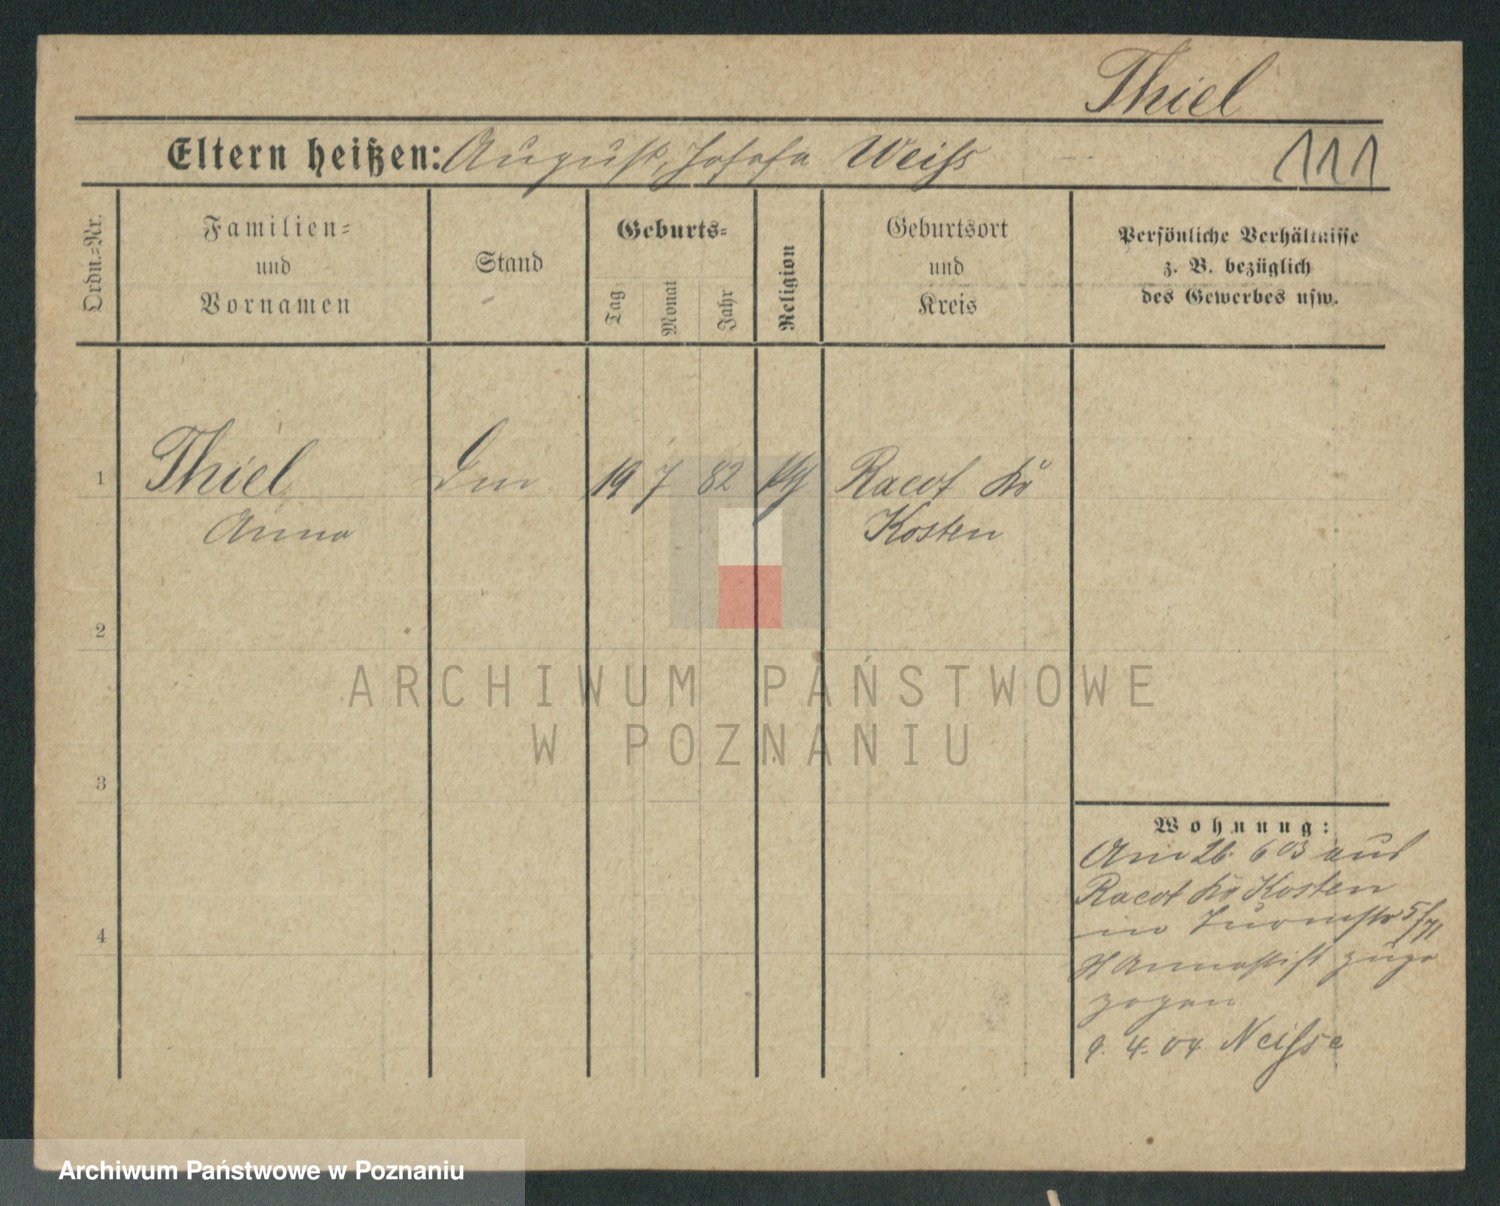 Thiel
Eltern heißen: August, Josefa Weiss
111
Ordn.=Nr.
Familien=
und
Vornamen
Stand
Geburts=
Tag
Monat
Jahr
Religion
Geburtsort
und
Kreis
Persönliche Verhältnisse
z. B. bezüglich
des Gewerbes usw.
1
Thiel 19 7 82 Racot Kr
Anna Kosten
2
3
4
Wohnung:
Am 26. 6 03 aus
Racot Kr Kosten
Turmstr 5/71
Annastift zuge
zogen
9. 4. 04 Neisse
ARCHIWUM PAŃSTWOWE
W POZNANIU
Archiwum Państwowe w Poznaniu